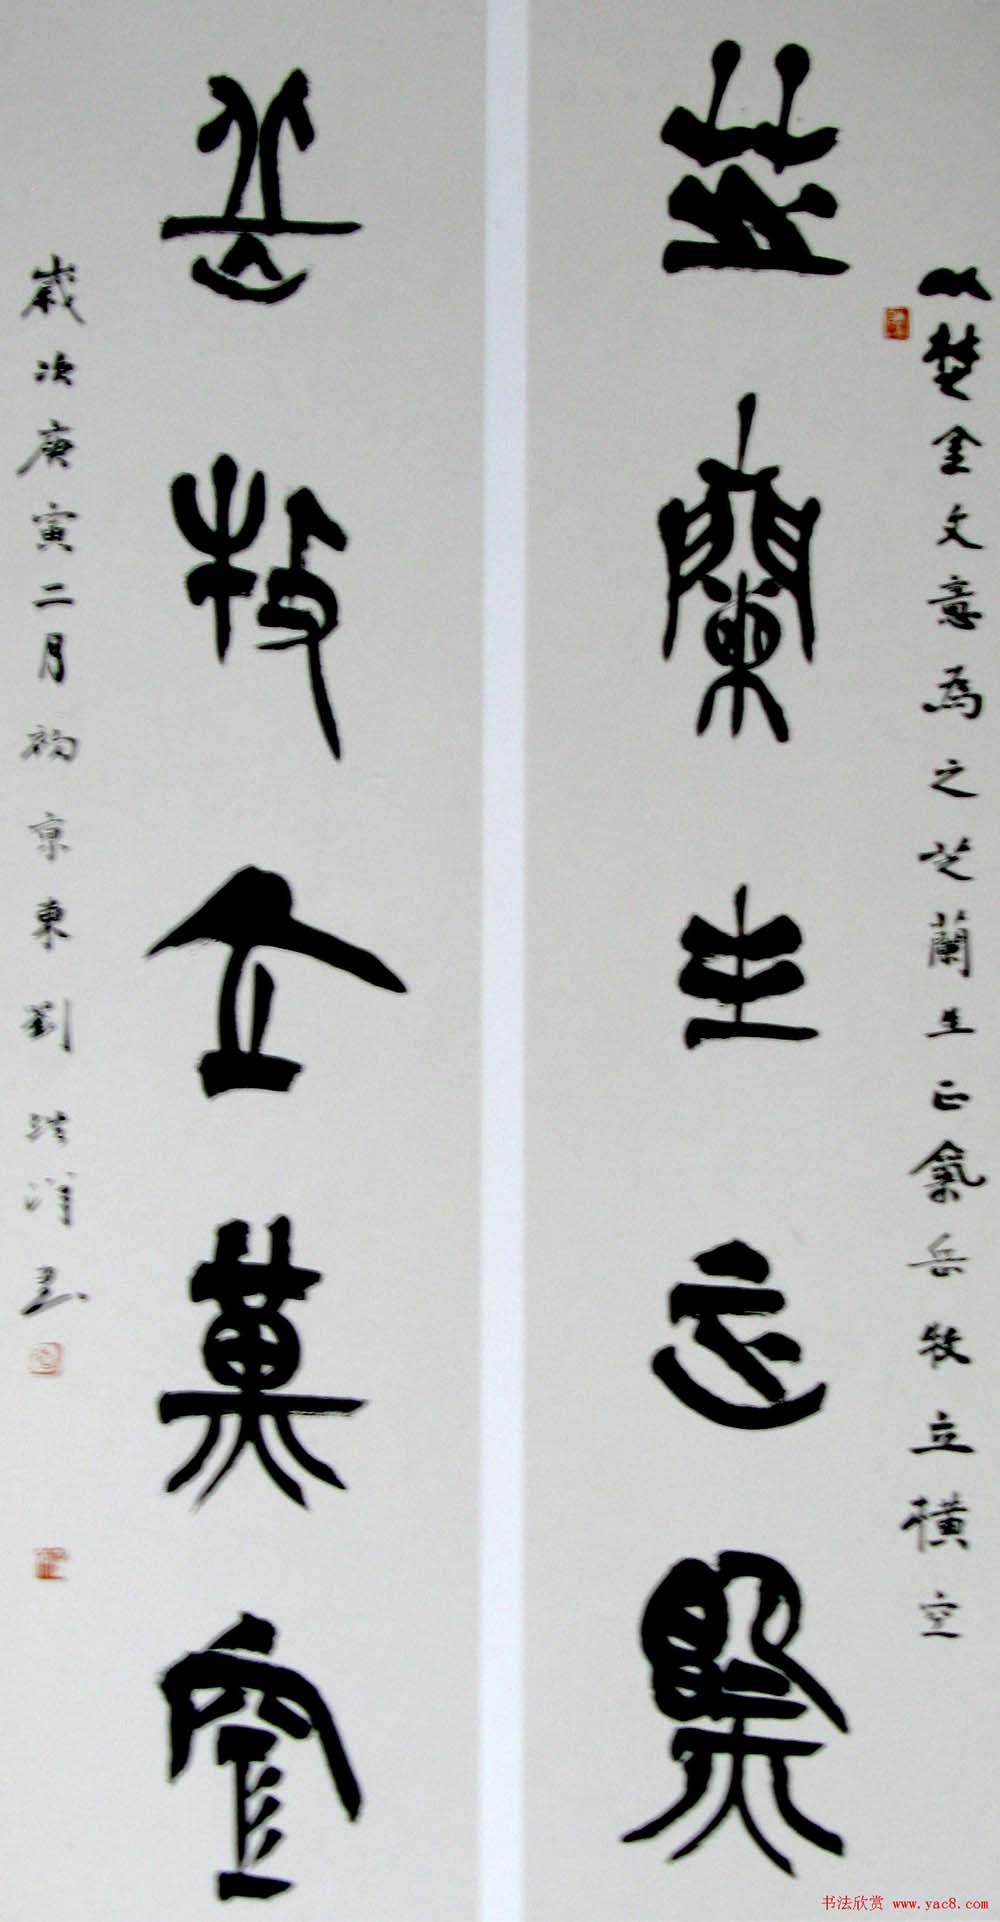 以楚金文意為之芝蘭生正氣岳牧立橫空
芝蘭生正氣
岳牧立橫空
歲次庚寅二月初京東劉洪潤書
书法欣赏 www.yac8.com